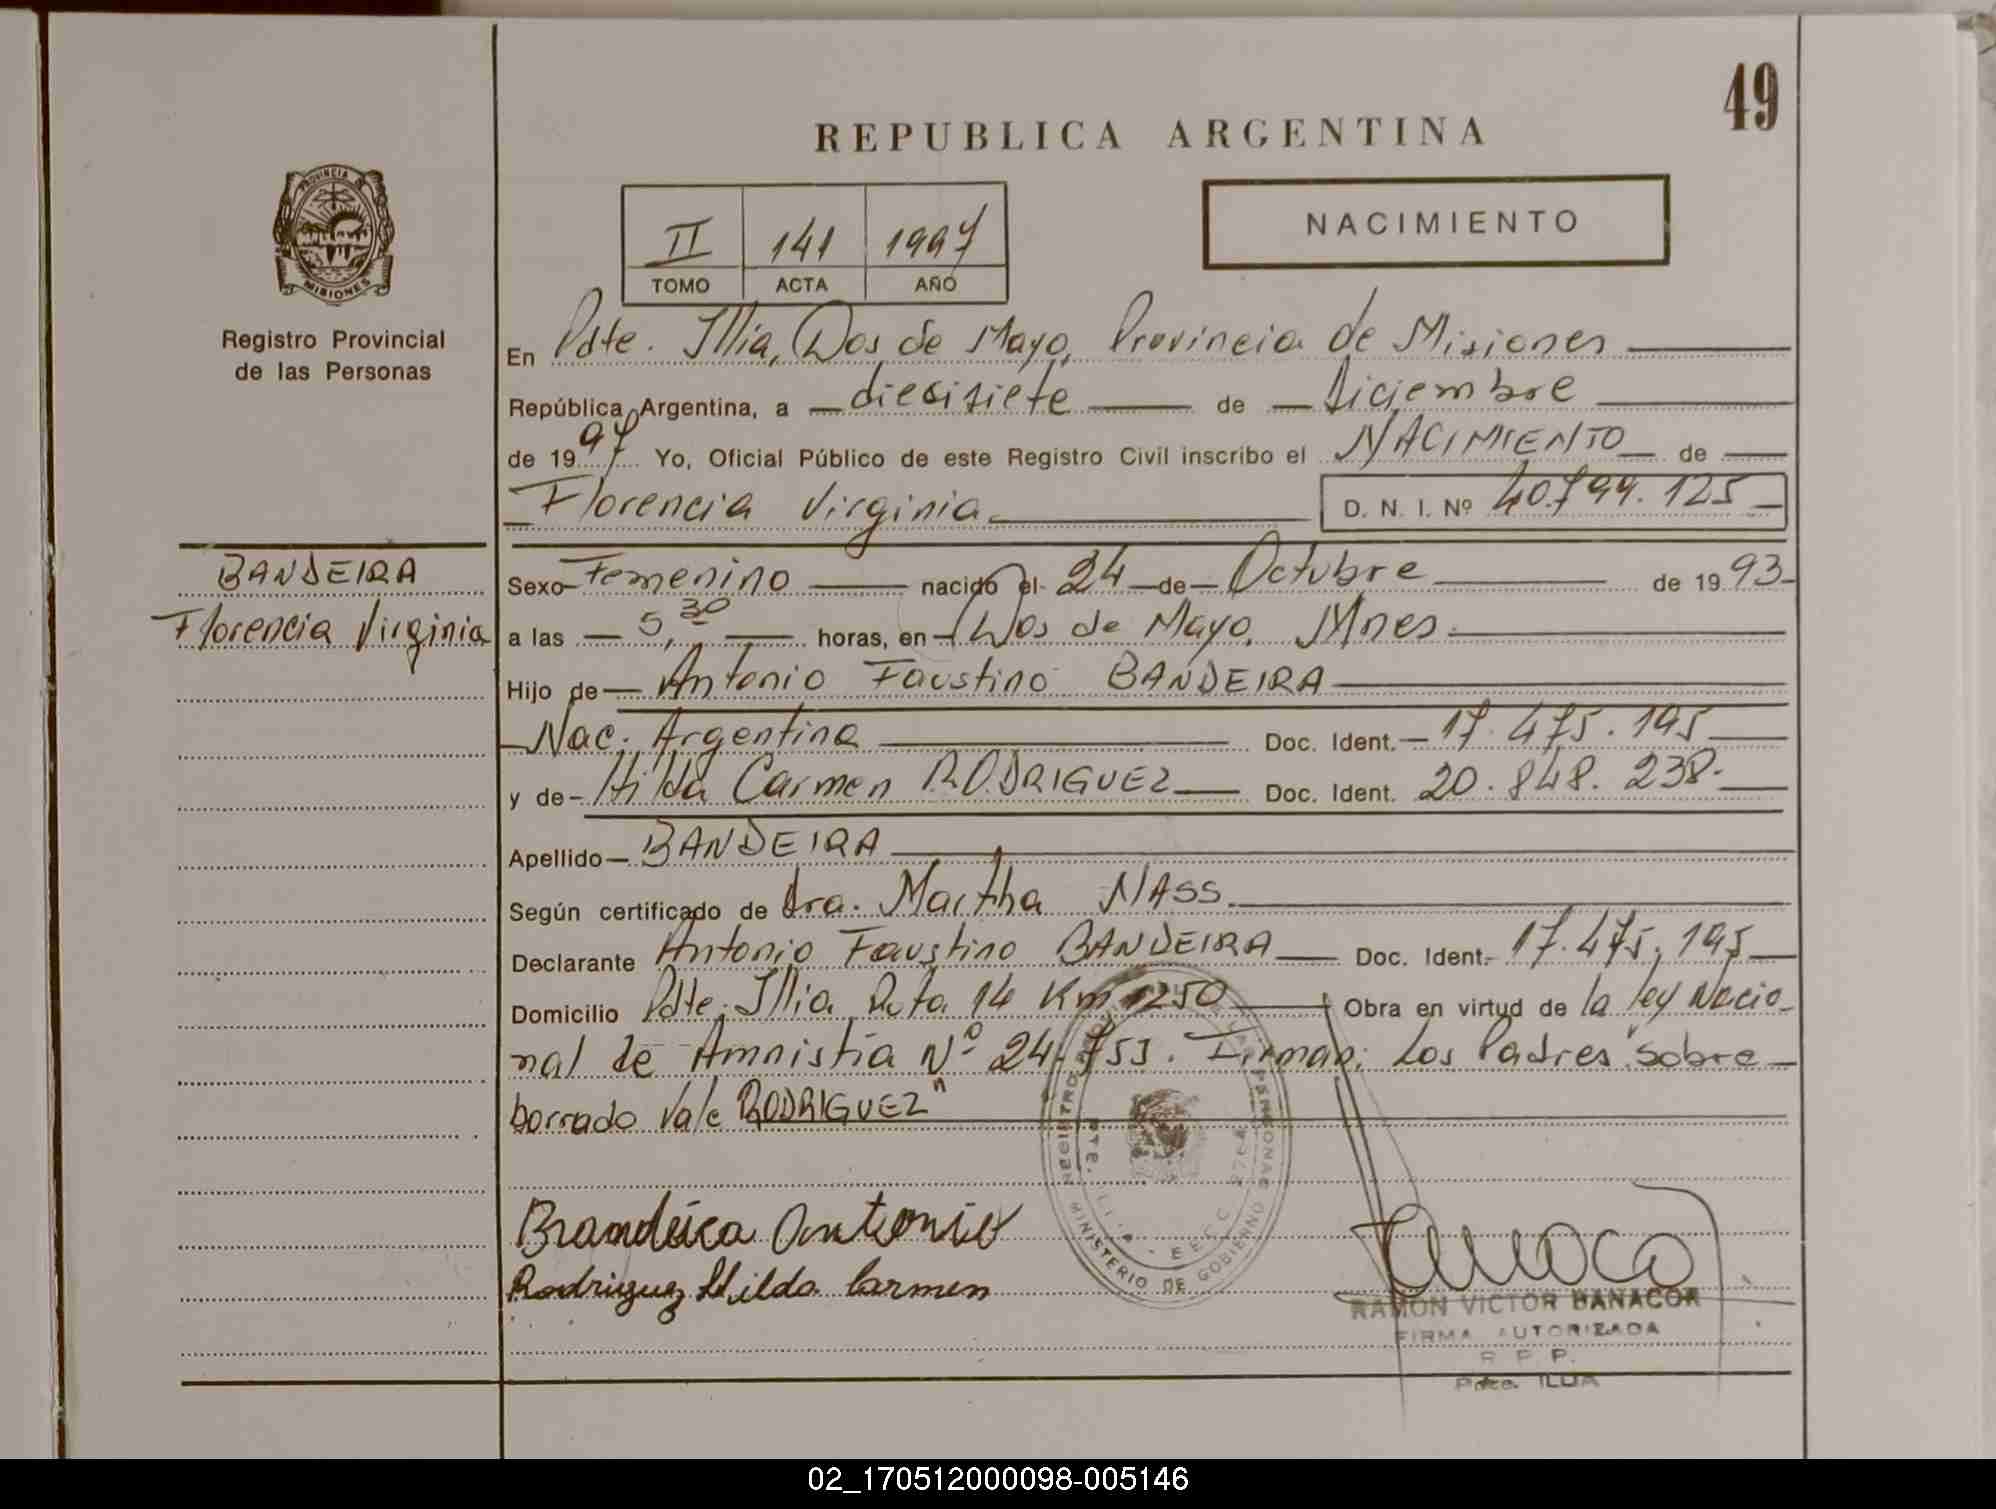 49
REPUBLICA ARGENTINA
NACIMIENTO
II 141 1997
TOMO ACTA AÑO
PROVINCIA DE
MISIONES
Registro Provincial
de las Personas
En Pdte. Illia, Dos de Mayo, Provincia de Misiones
República Argentina, a diecisiete de diciembre
de 1997 Yo, Oficial Público de este Registro Civil inscribo el NACIMIENTO de
Florencia Virginia D. N. I. Nº 40.794.125
BANDEIRA
Florencia Virginia
Sexo Femenino nacido el 24 de Octubre de 1993
a las 5,30 horas, en Dos de Mayo, Mnes.
Hijo de Antonio Faustino BANDEIRA
Nac. Argentina Doc. Ident. 17.475.195
y de Hilda Carmen RODRIGUEZ Doc. Ident. 20.848.238.
Apellido BANDEIRA
Según certificado de dra. Martha NASS.
Declarante Antonio Faustino BANDEIRA Doc. Ident. 17.475.195
Domicilio Pdte. Illia Ruta 14 Km 1250 Obra en virtud de la ley Nacio-
nal de Amnistía Nº 24.755. Firman: Los Padres "Sobre
borrado Vale RODRIGUEZ"
REGISTRO PERSONAS
PTE. EECC 2764
MINISTERIO DE GOBIERNO
Brandeira Antonio
Rodriguez Hilda Carmen
RAMON VICTOR BANACOR
FIRMA AUTORIZADA
R P P.
Pdte. ILLIA
02_170512000098-005146